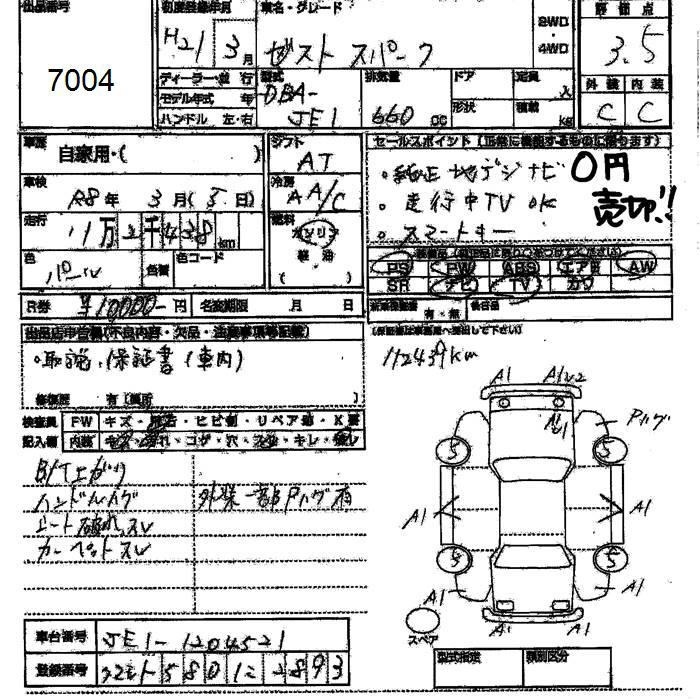 出品番号 初度登録年月 車名・グレード 評価点
7004
H21年3月 ゼスト スパーク 2WD・4WD 3.5
ディーラー車 並行 型式 排気量 ドア 定員 外装 内装
モデル年式 年 DBA- 形状 積載 C C
ハンドル 左・右 JE1 660 cc kg
車歴 自家用・( ) シフト AT
セールスポイント
・純正地デジナビ 0円
・走行中TV OK 売切!!
・スマートキー
車検 R8年 3月( 5日) 冷房 AA/C
走行 11万2千438km 燃料 ガソリン 軽油
色 パール 色替 色コード
PS PW ABS エアB AW
SR ナビ TV カワ
R券 ¥10000-円 名変期限 月 日
有・無
・取説、保証書(車内)
修復歴 有(箇所
112439km
検査員 FW キズ・飛石・ヒビ割・リペア跡・X要
記入欄 内装
A1 A1 U2
Pハゲ
B/Tエガリ
ハンドルハゲ 外装一部Pハゲ有
シート破れ、スレ
カーペットスレ
5 5
A1 A1
5 5
A1 A1
A1 A1
スペア
車台番号 JE1-1204521
登録番号 580 に 2893
型式指定 類別区分